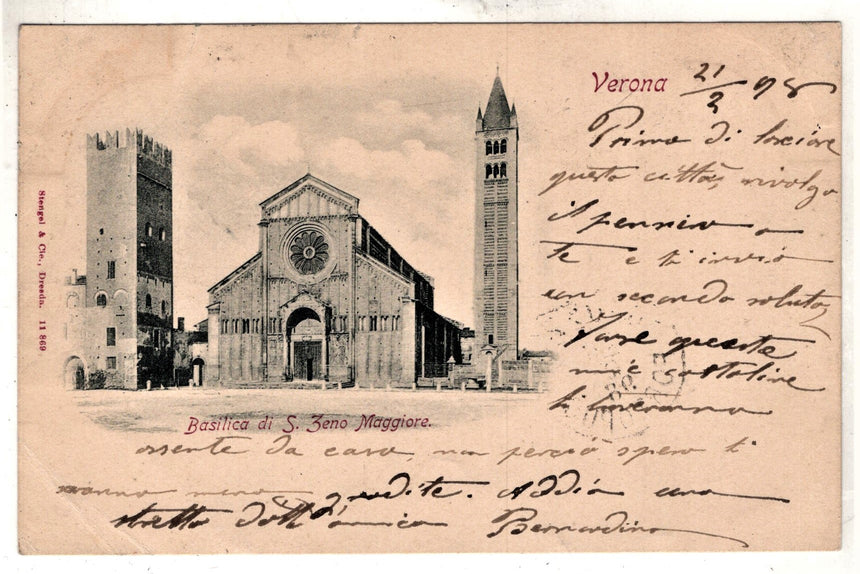 Verona 21/2 98
Prima di lasciare
questa città, rivolgo
il pensiero a
te e ti invio
un secondo saluto,
Forse queste
mie cartoline
ti troveranno
Stengel & Cie., Dresda. 11 869
Basilica di S. Zeno Maggiore.
assente da casa, non perciò spero ti
saranno meno gradite. Addio una
stretta dall'amico Bernardino